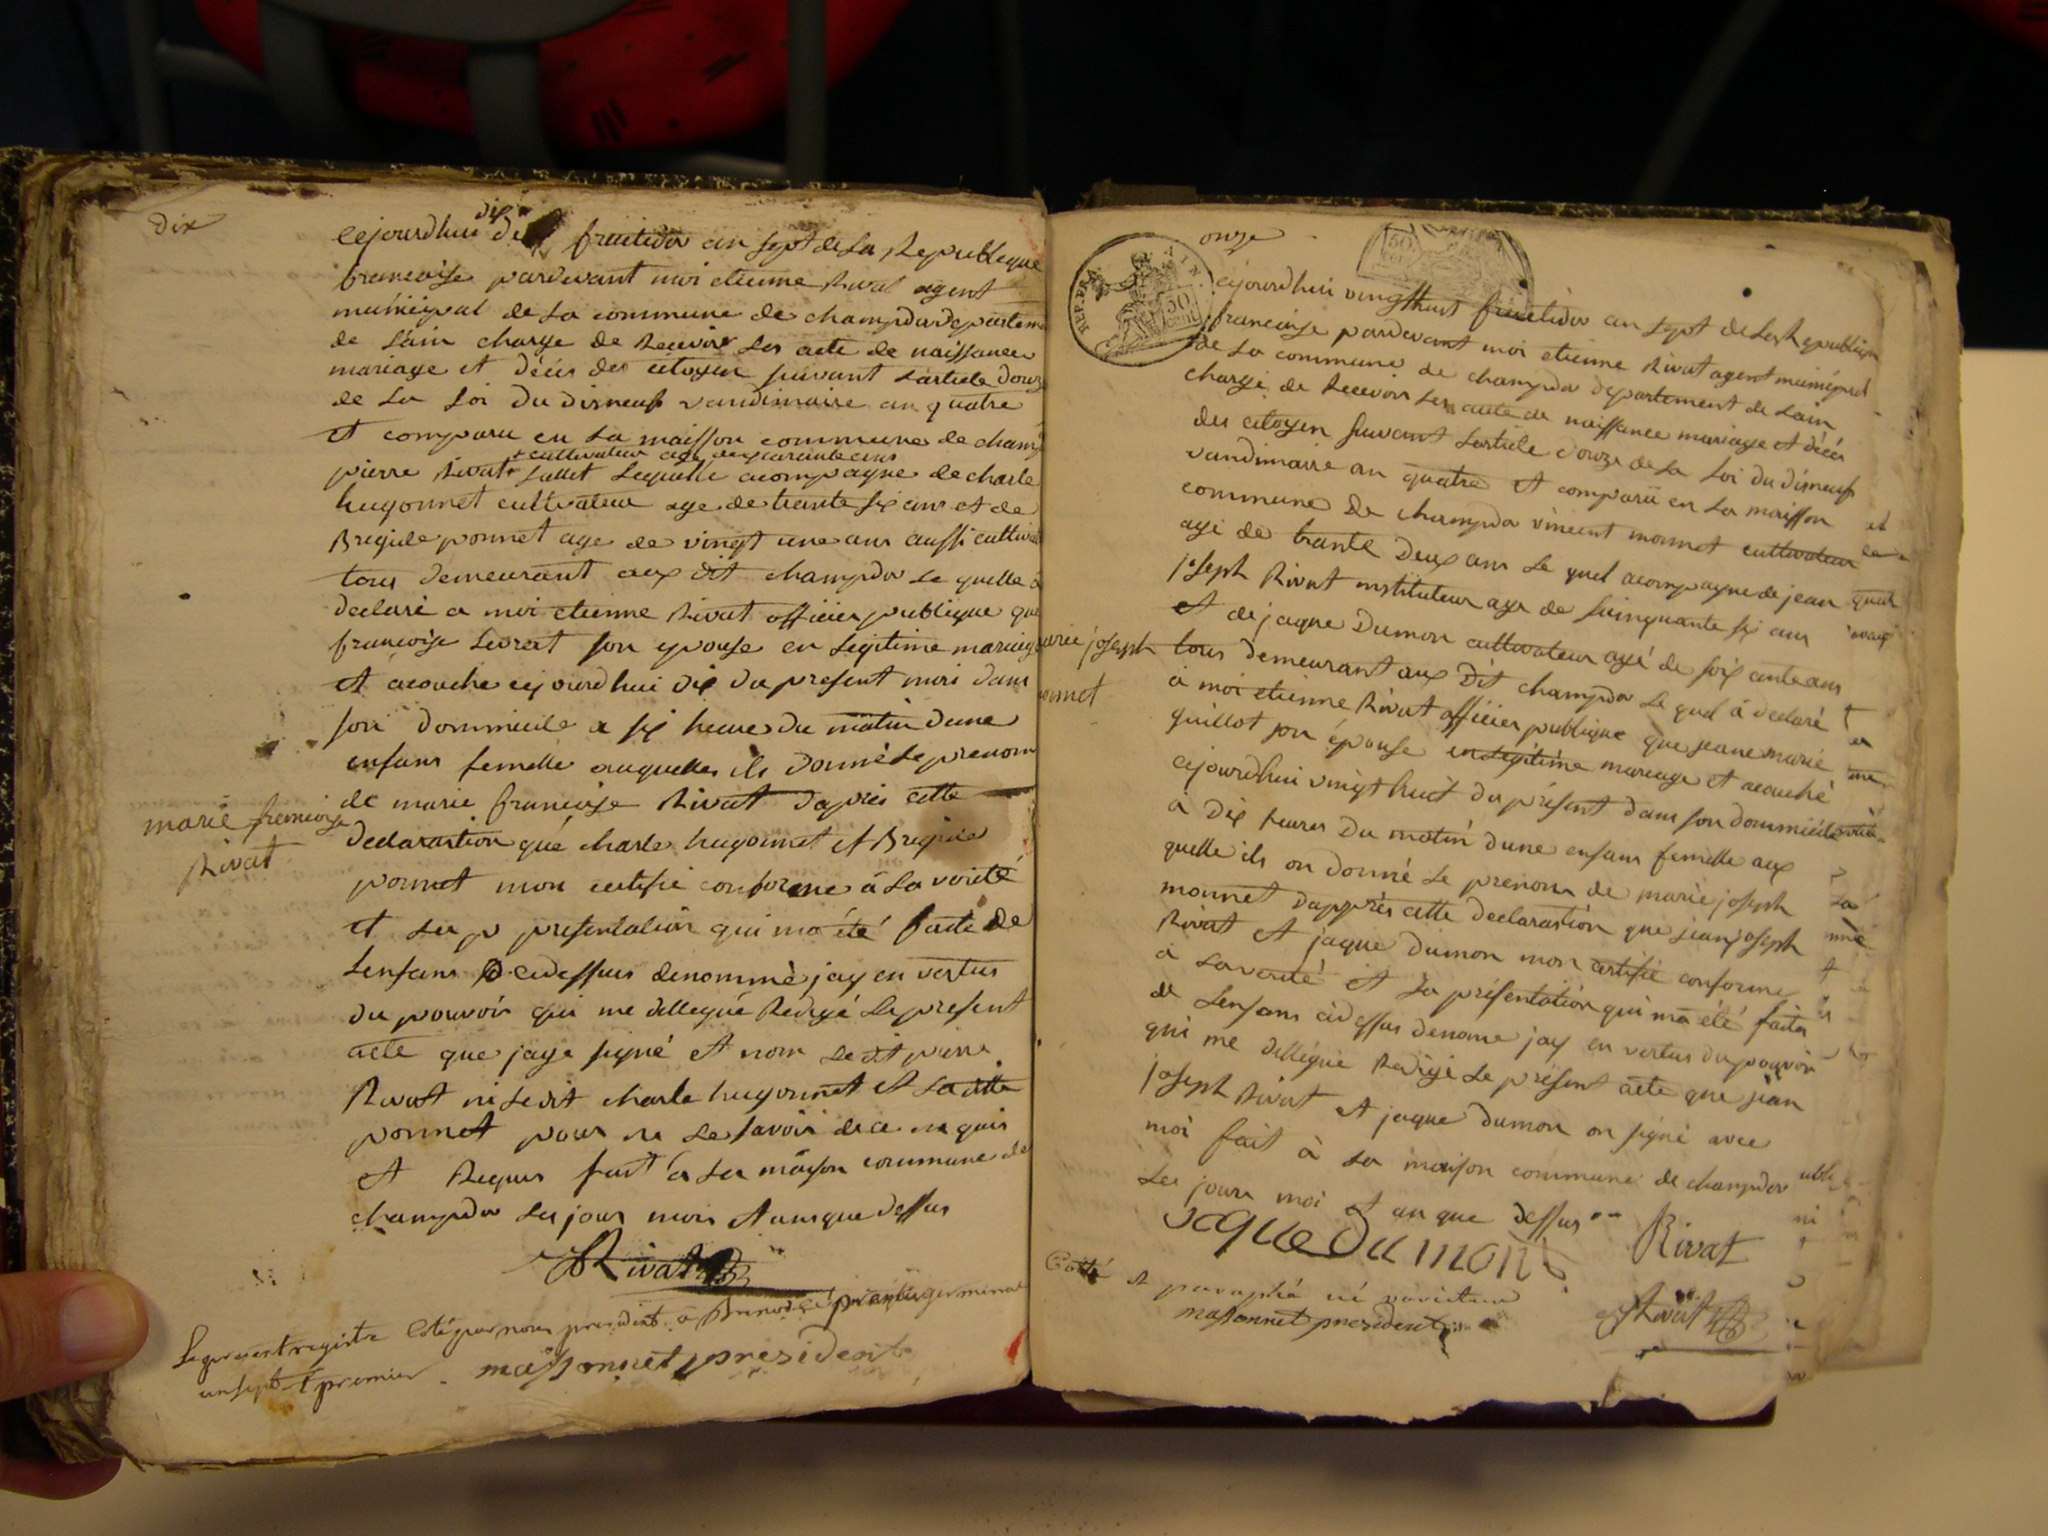 dix
cejourdhui dix fructidor an sept de la Republique
francoise pardevant moi etienne Rivat agent
municipal de la commune de champdor departem
de lain charge de Recevoir les acte de naissance
mariage et décés des citoyen suivant larticle douze
de la Loi du disneuf vandimaire an quatre
et comparu en la maisson commune de champ
+ cultivateur agé de quarante ans
pierre Rivat + Sallet Lequelle acompagne de charle
hugonnet cultivateur age de trante six ans et de
Brigide ponnet age de vingt une ans aussi cultiv
tous demeurant aux dit champdor Le quelle a
declaré a moi etienne Rivat officier publique que
francoise Levrat son epouse en legitime mariage
et acouche cejourdhui dix du present mois dans
son dommicile a six heure du matin dune
enfans femelle auquelles ils donné Le prenom
de marie francoise Rivat daprés cette
marie francoise
Rivat
declarastion qué charle hugonnet et Brigide
ponnet mon certifié conforme à La vérité
et La p presentation qui ma été faite de
Lenfans cidessus denommé jay en vertus
du pouvoir qui me dellegué Redigé Le present
acte que jaye signé et nom Le dit pierre
Rivat ni Le dit charle hugonnet et La ditte
ponnet pour ne Le savoir de ce en quis
et Requis fait à La maison commune de
champdor Les jour mois et ans que dessus
Rivat
Le present registre Cotté par nous president à Brenod le vingt germinal
an sept premier. massonnet president
onze
REP. FRA. 50 CENT. AIN.
50
cejourdhui vingthuit fructidor an sept de La Republiqu
francoise pardevant moi etienne Rivat agent municipal
de La commune de champdor departement de Lain
chargé de Recevoir Les acte de naissance mariage et décés
des citoyen suivant Larticle douze de La Loi du disneuf
vandimaire an quatre et comparü en La maisson
commune de champdor vincent monnet cultivateur
agé de trante deux ans Le quel acompagne de jean
joseph Rivat instituteur age de sinquante six ans
et de jaque Dumon cultivateur agé de soixante ans
arie joseph
onnet
tous demeurant aux Dit champdor Le quel à declaré
à moi etienne Rivat officier publique que jeane marie
guillot son épouse en Legitime mariage et acouché
cejourdhui vingt huit du présent dans son dommicile
a dix heures Du matin dune enfans femelle aux
quelle ils on donné Le prenom de marie joseph
monnet daprrés cette declarastion que jean joseph
Rivat et jaque dumon mon certifié conforme
a La verité et La présentation qui ma été faite
de Lenfans cidessus denome jay en vertus du pouvoir
qui me dellégue Redigé Le présent acte que jean
joseph Rivat et jaque dumon on signé avec
moi fait à La maison commune de champdor
Les jour moi et an que dessus
jaque Dumon Rivat
Cotté et paraphé né varietur
massonnet president
Rivat